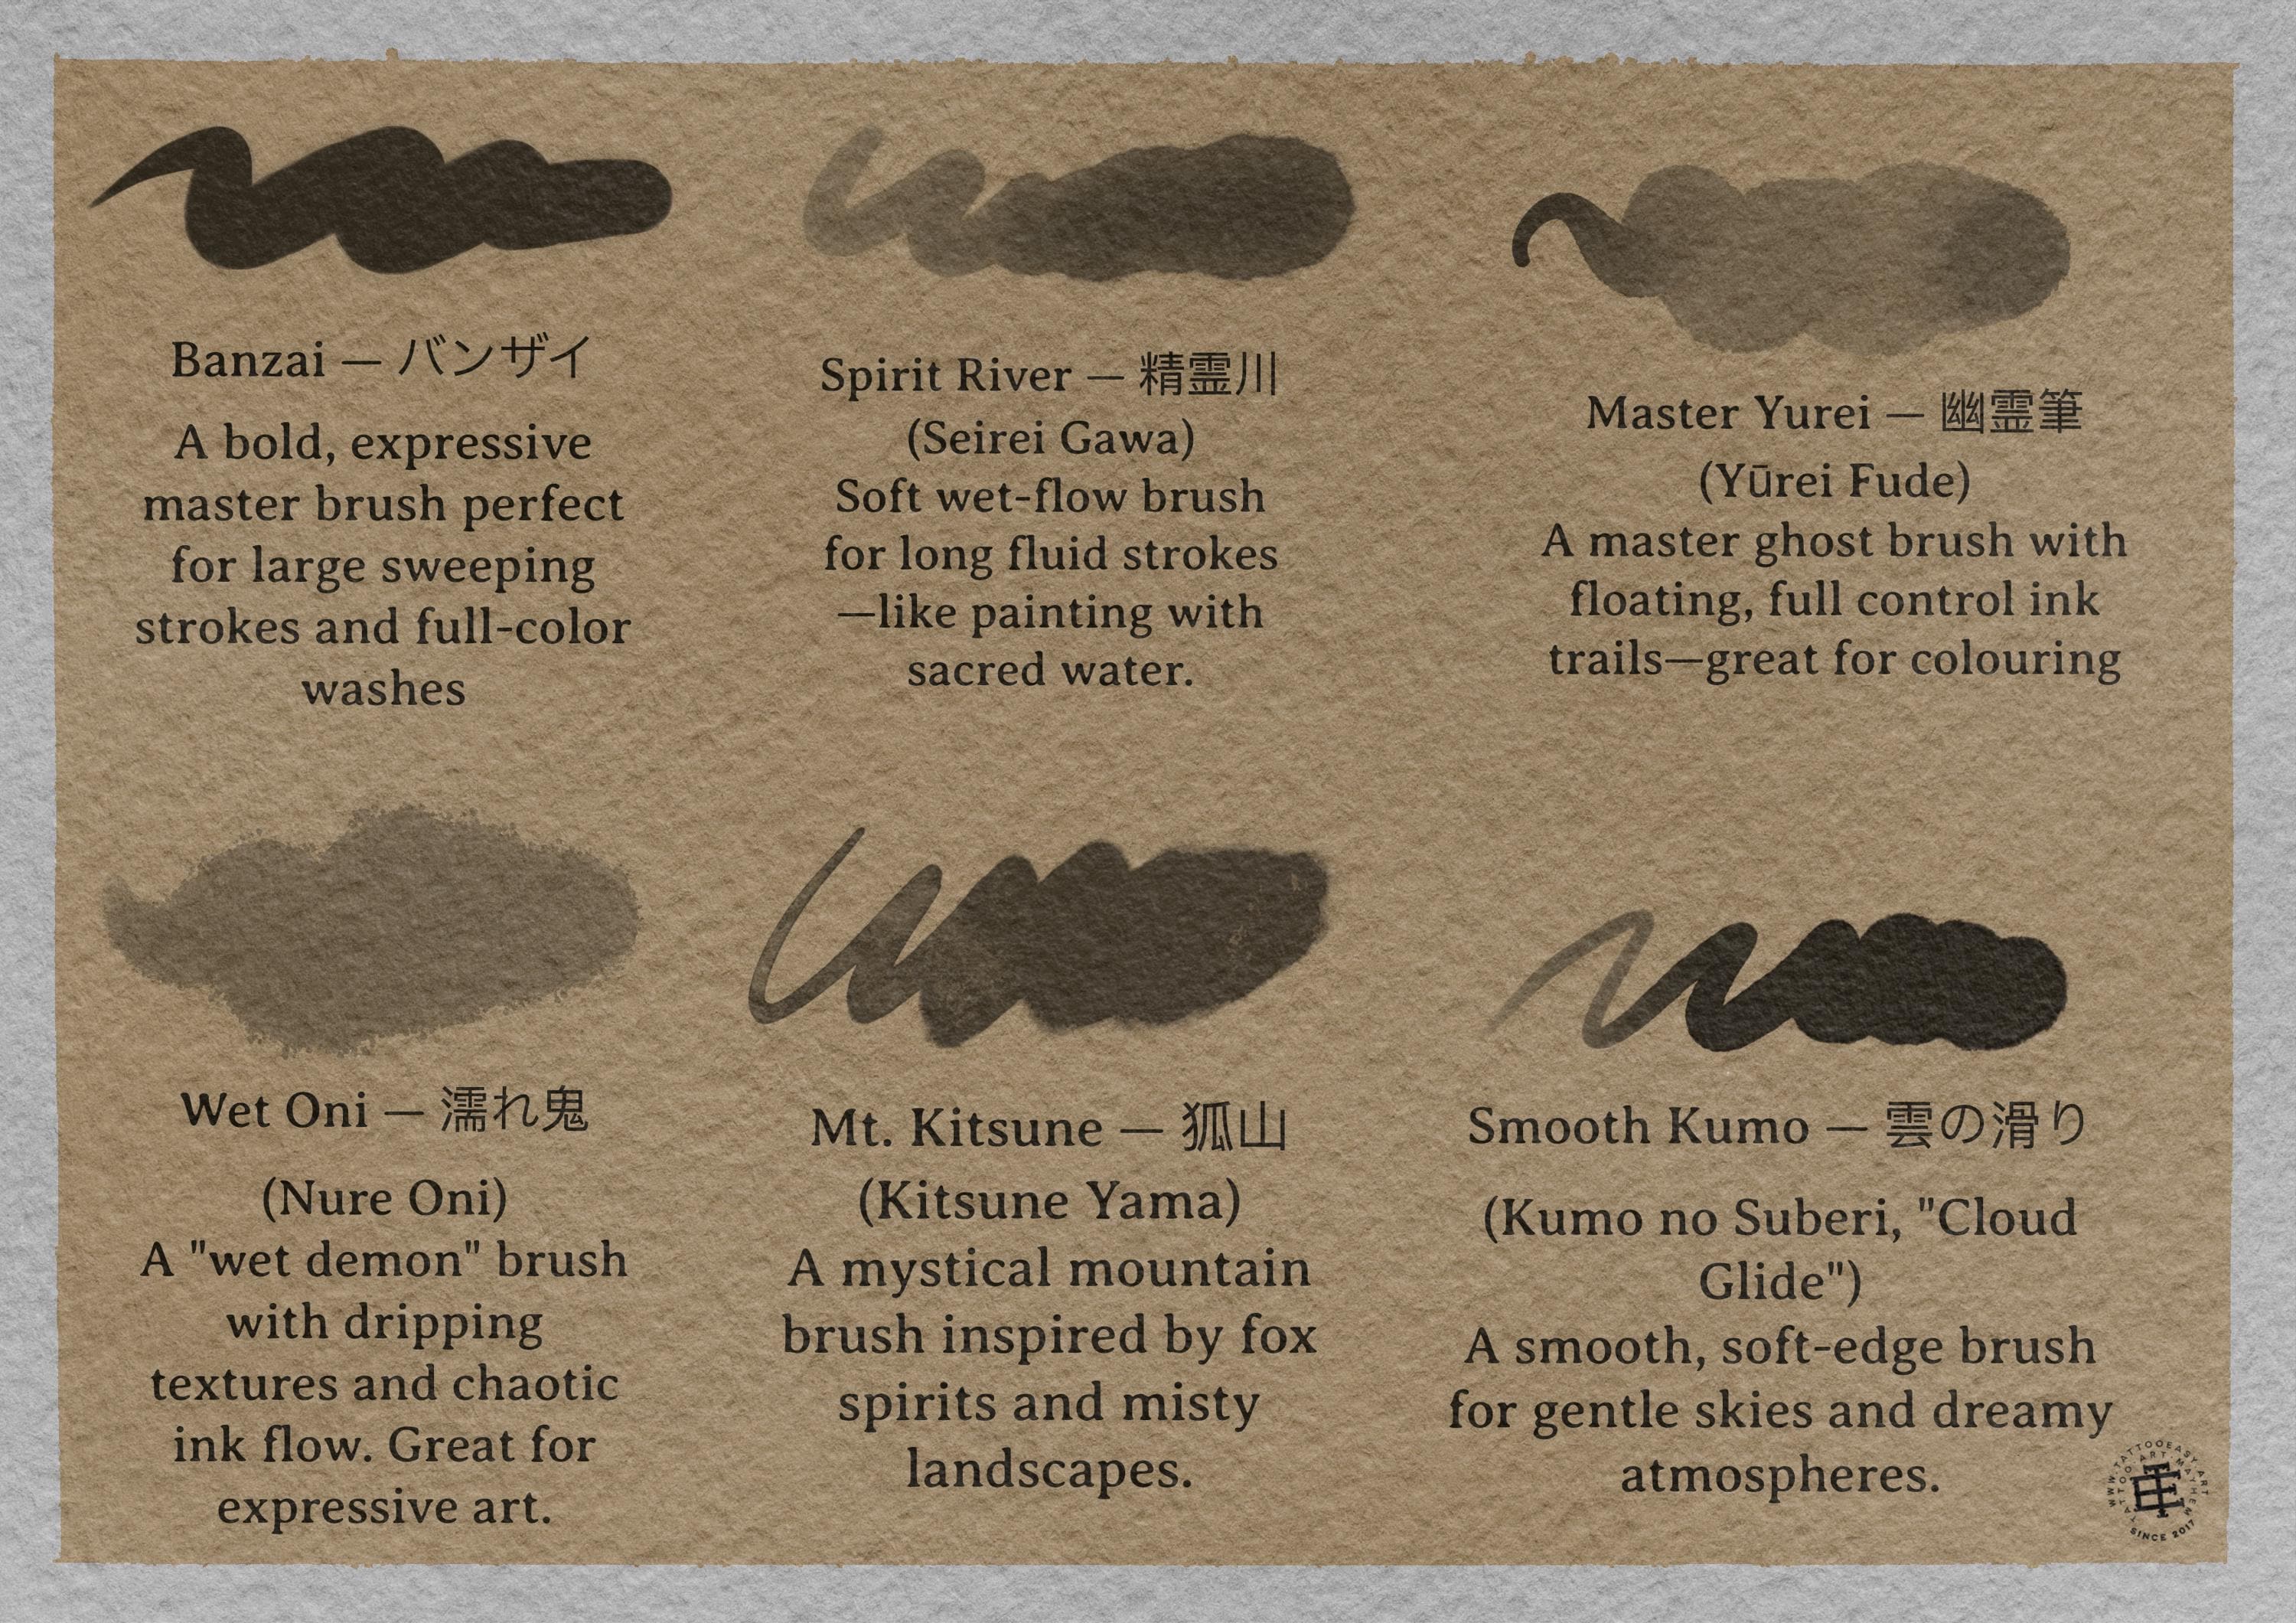 Banzai — バンザイ
A bold, expressive
master brush perfect
for large sweeping
strokes and full-color
washes
Spirit River — 精霊川
(Seirei Gawa)
Soft wet-flow brush
for long fluid strokes
—like painting with
sacred water.
Master Yurei — 幽霊筆
(Yūrei Fude)
A master ghost brush with
floating, full control ink
trails—great for colouring
Wet Oni — 濡れ鬼
(Nure Oni)
A "wet demon" brush
with dripping
textures and chaotic
ink flow. Great for
expressive art.
Mt. Kitsune — 狐山
(Kitsune Yama)
A mystical mountain
brush inspired by fox
spirits and misty
landscapes.
Smooth Kumo — 雲の滑り
(Kumo no Suberi, "Cloud
Glide")
A smooth, soft-edge brush
for gentle skies and dreamy
atmospheres.
WWW.TATTOOEASY.ART
SINCE 2017